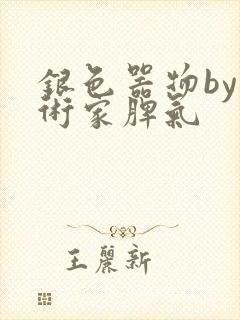 銀色器物by
術家脾氣
王麗新